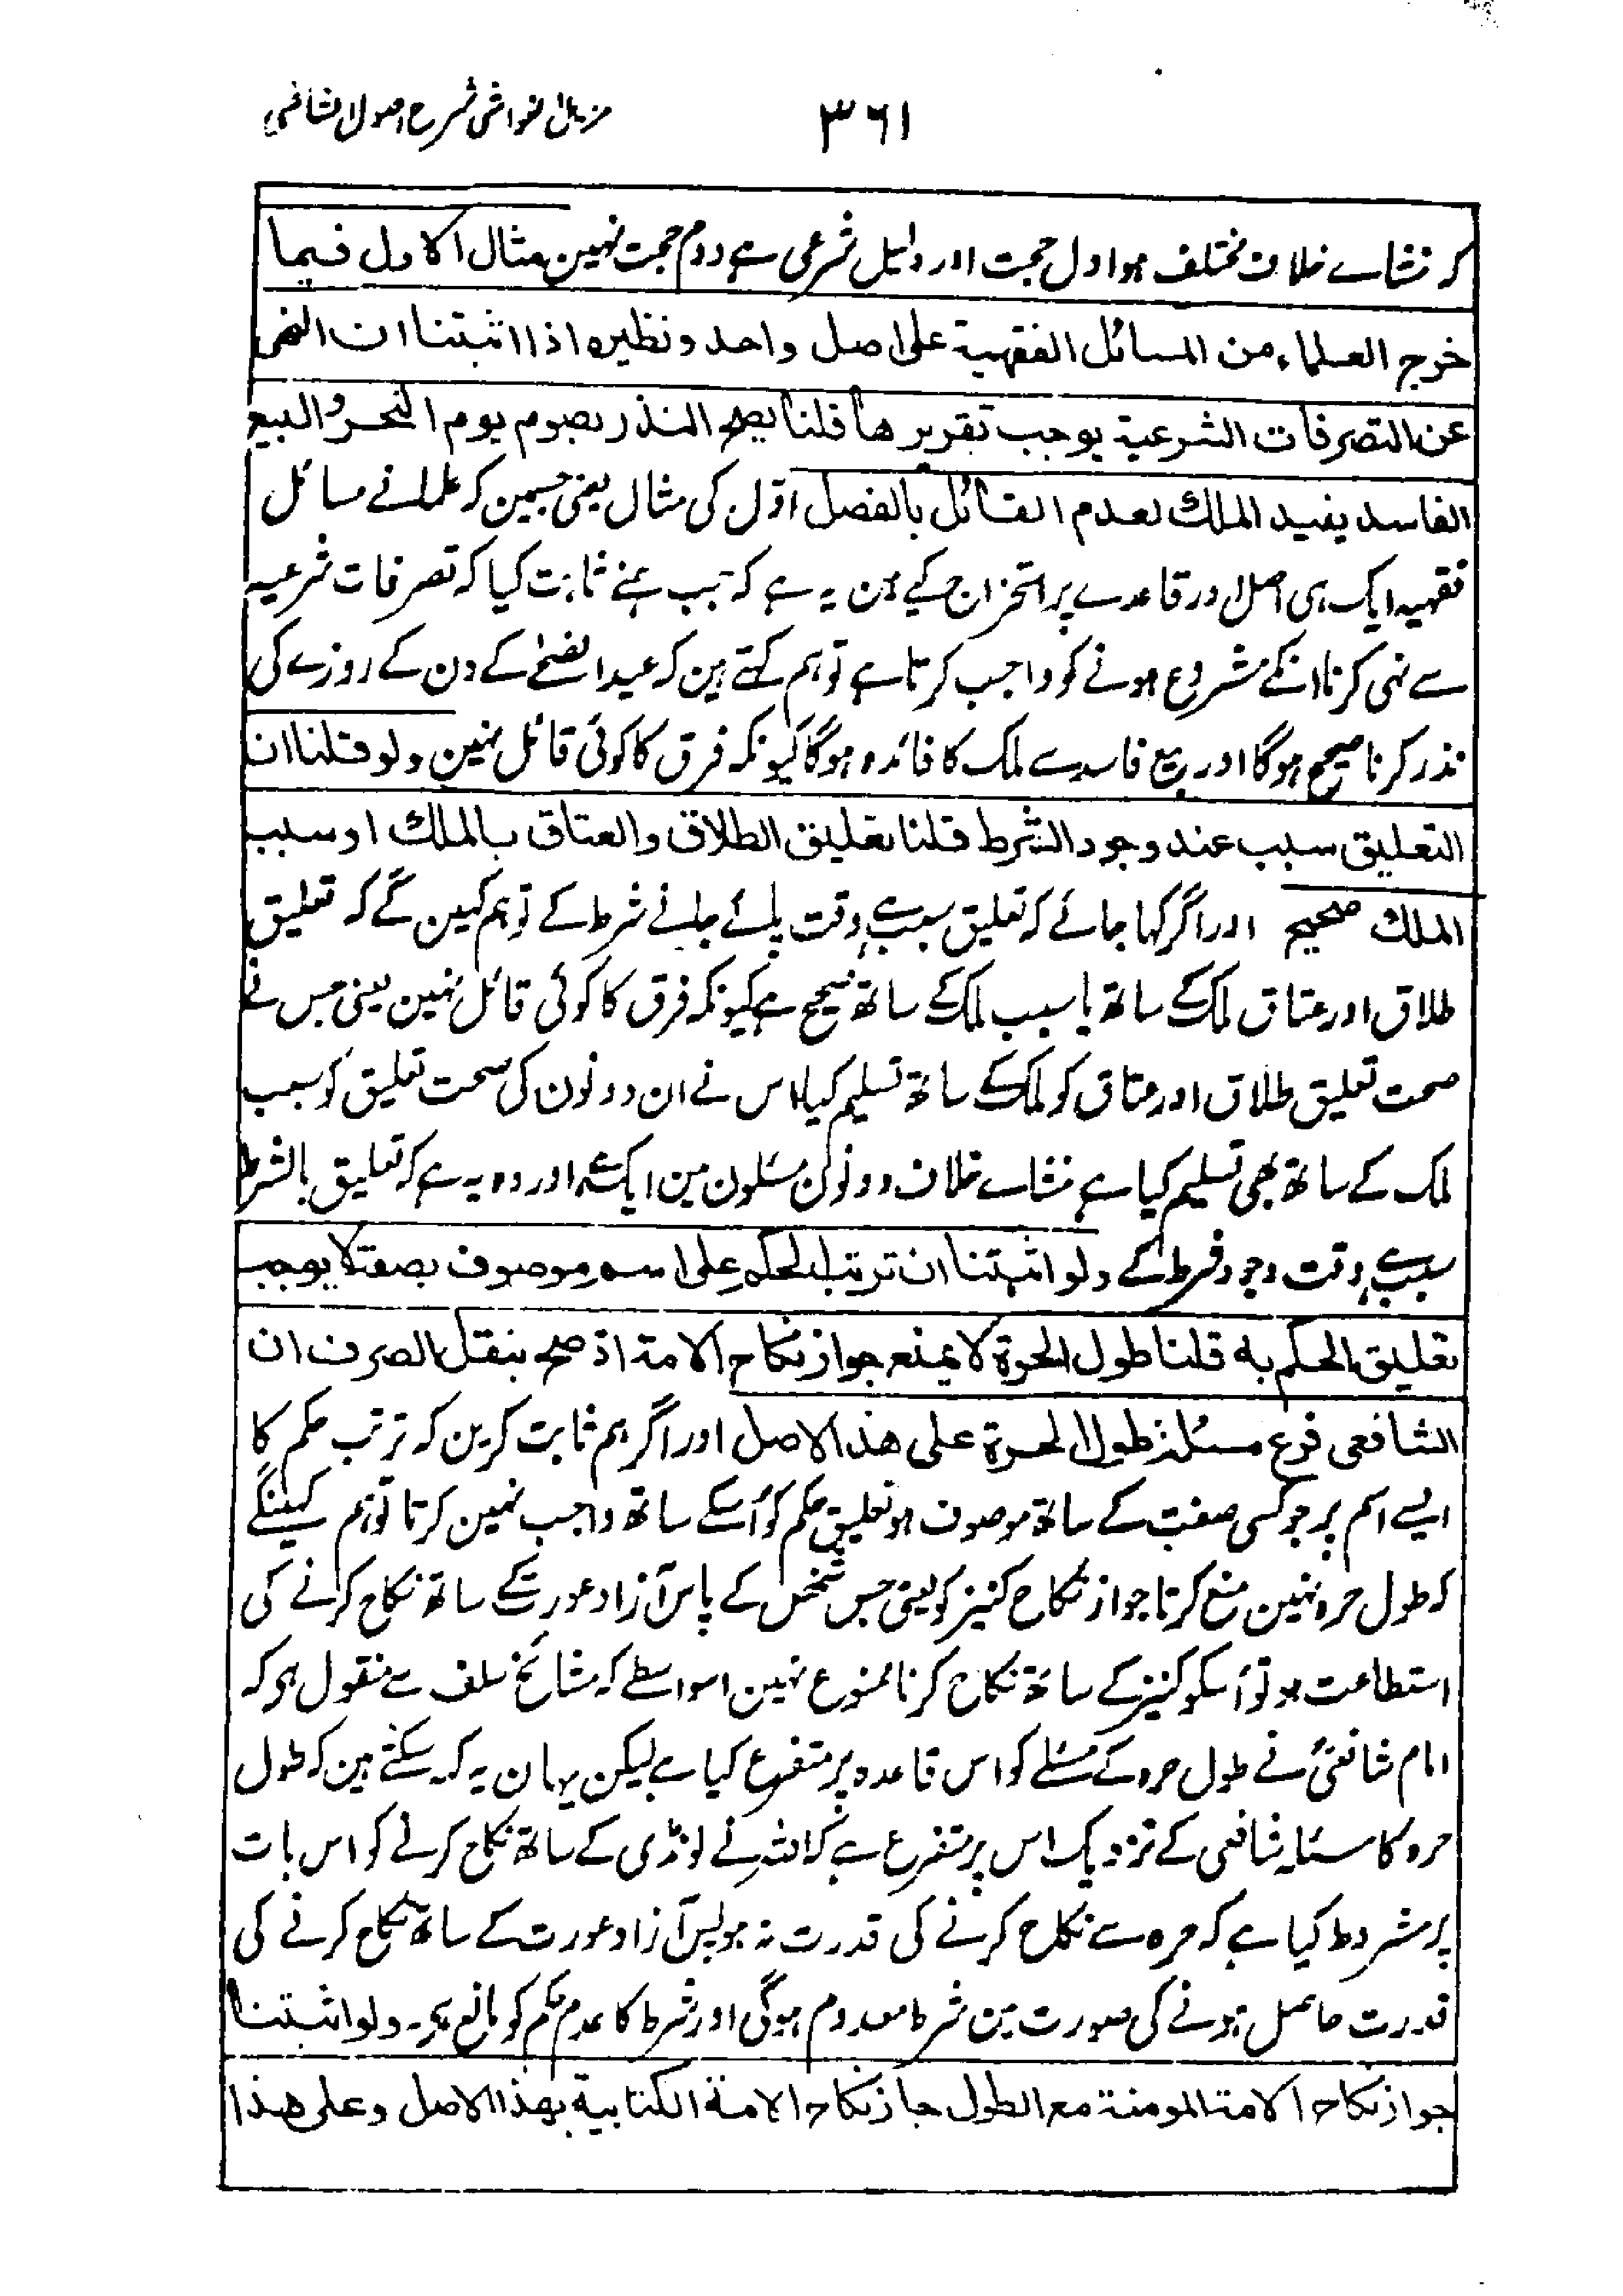 مزیل الغواشی شرح اصول الشاشی
۳۶۱
کہ منشاے خلاف مختلف ہو اول حجت اور دلیل شرعی ہے دوم حجت نہین مثال الاول فیما
خرج العلماء من المسائل الفقهية علی اصل واحد ونظیره اذا اثبتنا ان النهی
عن التصرفات الشرعية يوجب تقريرها قلنا يصح النذر بصوم يوم النحر والبيع
الفاسد يفيد الملك لعدم القائل بالفصل اوّل کی مثال یعنی جسمین کہ علما نے مسائل
فقہیہ ایک ہی اصل اور قاعدے پر استخراج کیے ہون یہ ہے کہ جب ہمنے ثابت کیا کہ تصرفات شرعیہ
سے نہی کرنا انکے مشروع ہونے کو واجب کرتا ہے تو ہم کہتے ہین کہ عید الضحیٰ کے دن کے روزے کی
نذر کرنا صحیح ہوگا اور بیع فاسد سے ملک کا فائدہ ہوگا کیونکہ فرق کا کوئی قائل نہین ولو قلنا ان
التعليق سبب عند وجود الشرط قلنا تعليق الطلاق والعتاق بالملك او سبب
الملك صحيح اور اگر کہا جائے کہ تعلیق سبب ہے وقت پائے جانے شرط کے تو ہم کہین گے کہ تعلیق
طلاق اور عتاق ملک کے ساتھ یا سبب ملک کے ساتھ صحیح ہے کیونکہ فرق کا کوئی قائل نہین یعنی جس نے
صحت تعلیق طلاق اور عتاق کو ملک کے ساتھ تسلیم کیا اس نے ان دونون کی صحت تعلیق کو سبب
ملک کے ساتھ بھی تسلیم کیا ہے منشاے خلاف دونون مسئلون مین ایک ہے اور وہ یہ ہے کہ تعلیق بالشرط
سبب ہے وقت وجود شرط کے ولو اثبتنا ان ترتب الحكم على اسم موصوف بصفة لا يوجب
تعليق الحكم به قلنا طول الحرة لا يمنع جواز نكاح الامة اذ صح بنقل السلف ان
الشافعی فرع مسئلة طول الحرة علی هذا الاصل اور اگر ہم ثابت کرین کہ ترتب حکم کا
ایسے اسم پر جو کسی صفت کے ساتھ موصوف ہو تعلیق حکم کو اُسکے ساتھ واجب نہین کرتا تو ہم کہینگے
کہ طول حرہ نہین منع کرتا جواز نکاح کنیز کو یعنی جس شخص کے پاس آزاد عورت کے ساتھ نکاح کرنے کی
استطاعت ہو تو اُسکو کنیز کے ساتھ نکاح کرنا ممنوع نہین اسواسطے کہ مشائخ سلف سے منقول ہی کہ
امام شافعیؒ نے طول حرہ کے مسئلے کو اس قاعدہ پر متفرع کیا ہے لیکن یہان یہ کہہ سکتے ہین کہ طول
حرہ کا مسئلہ شافعی کے نزدیک اس پر متفرع ہے کہ اللہ نے لونڈی کے ساتھ نکاح کرنے کو اس بات
پر مشروط کیا ہے کہ حرہ سے نکاح کرنے کی قدرت نہ ہو پس آزاد عورت کے ساتھ نکاح کرنے کی
قدرت حاصل ہونے کی صورت مین شرط معدوم ہوگی اور شرط کا عدم حکم کو مانع ہی۔ ولو اثبتنا
جواز نكاح الامة المومنة مع الطول جاز نكاح الامة الكتابية بهذا الاصل وعلى هذا